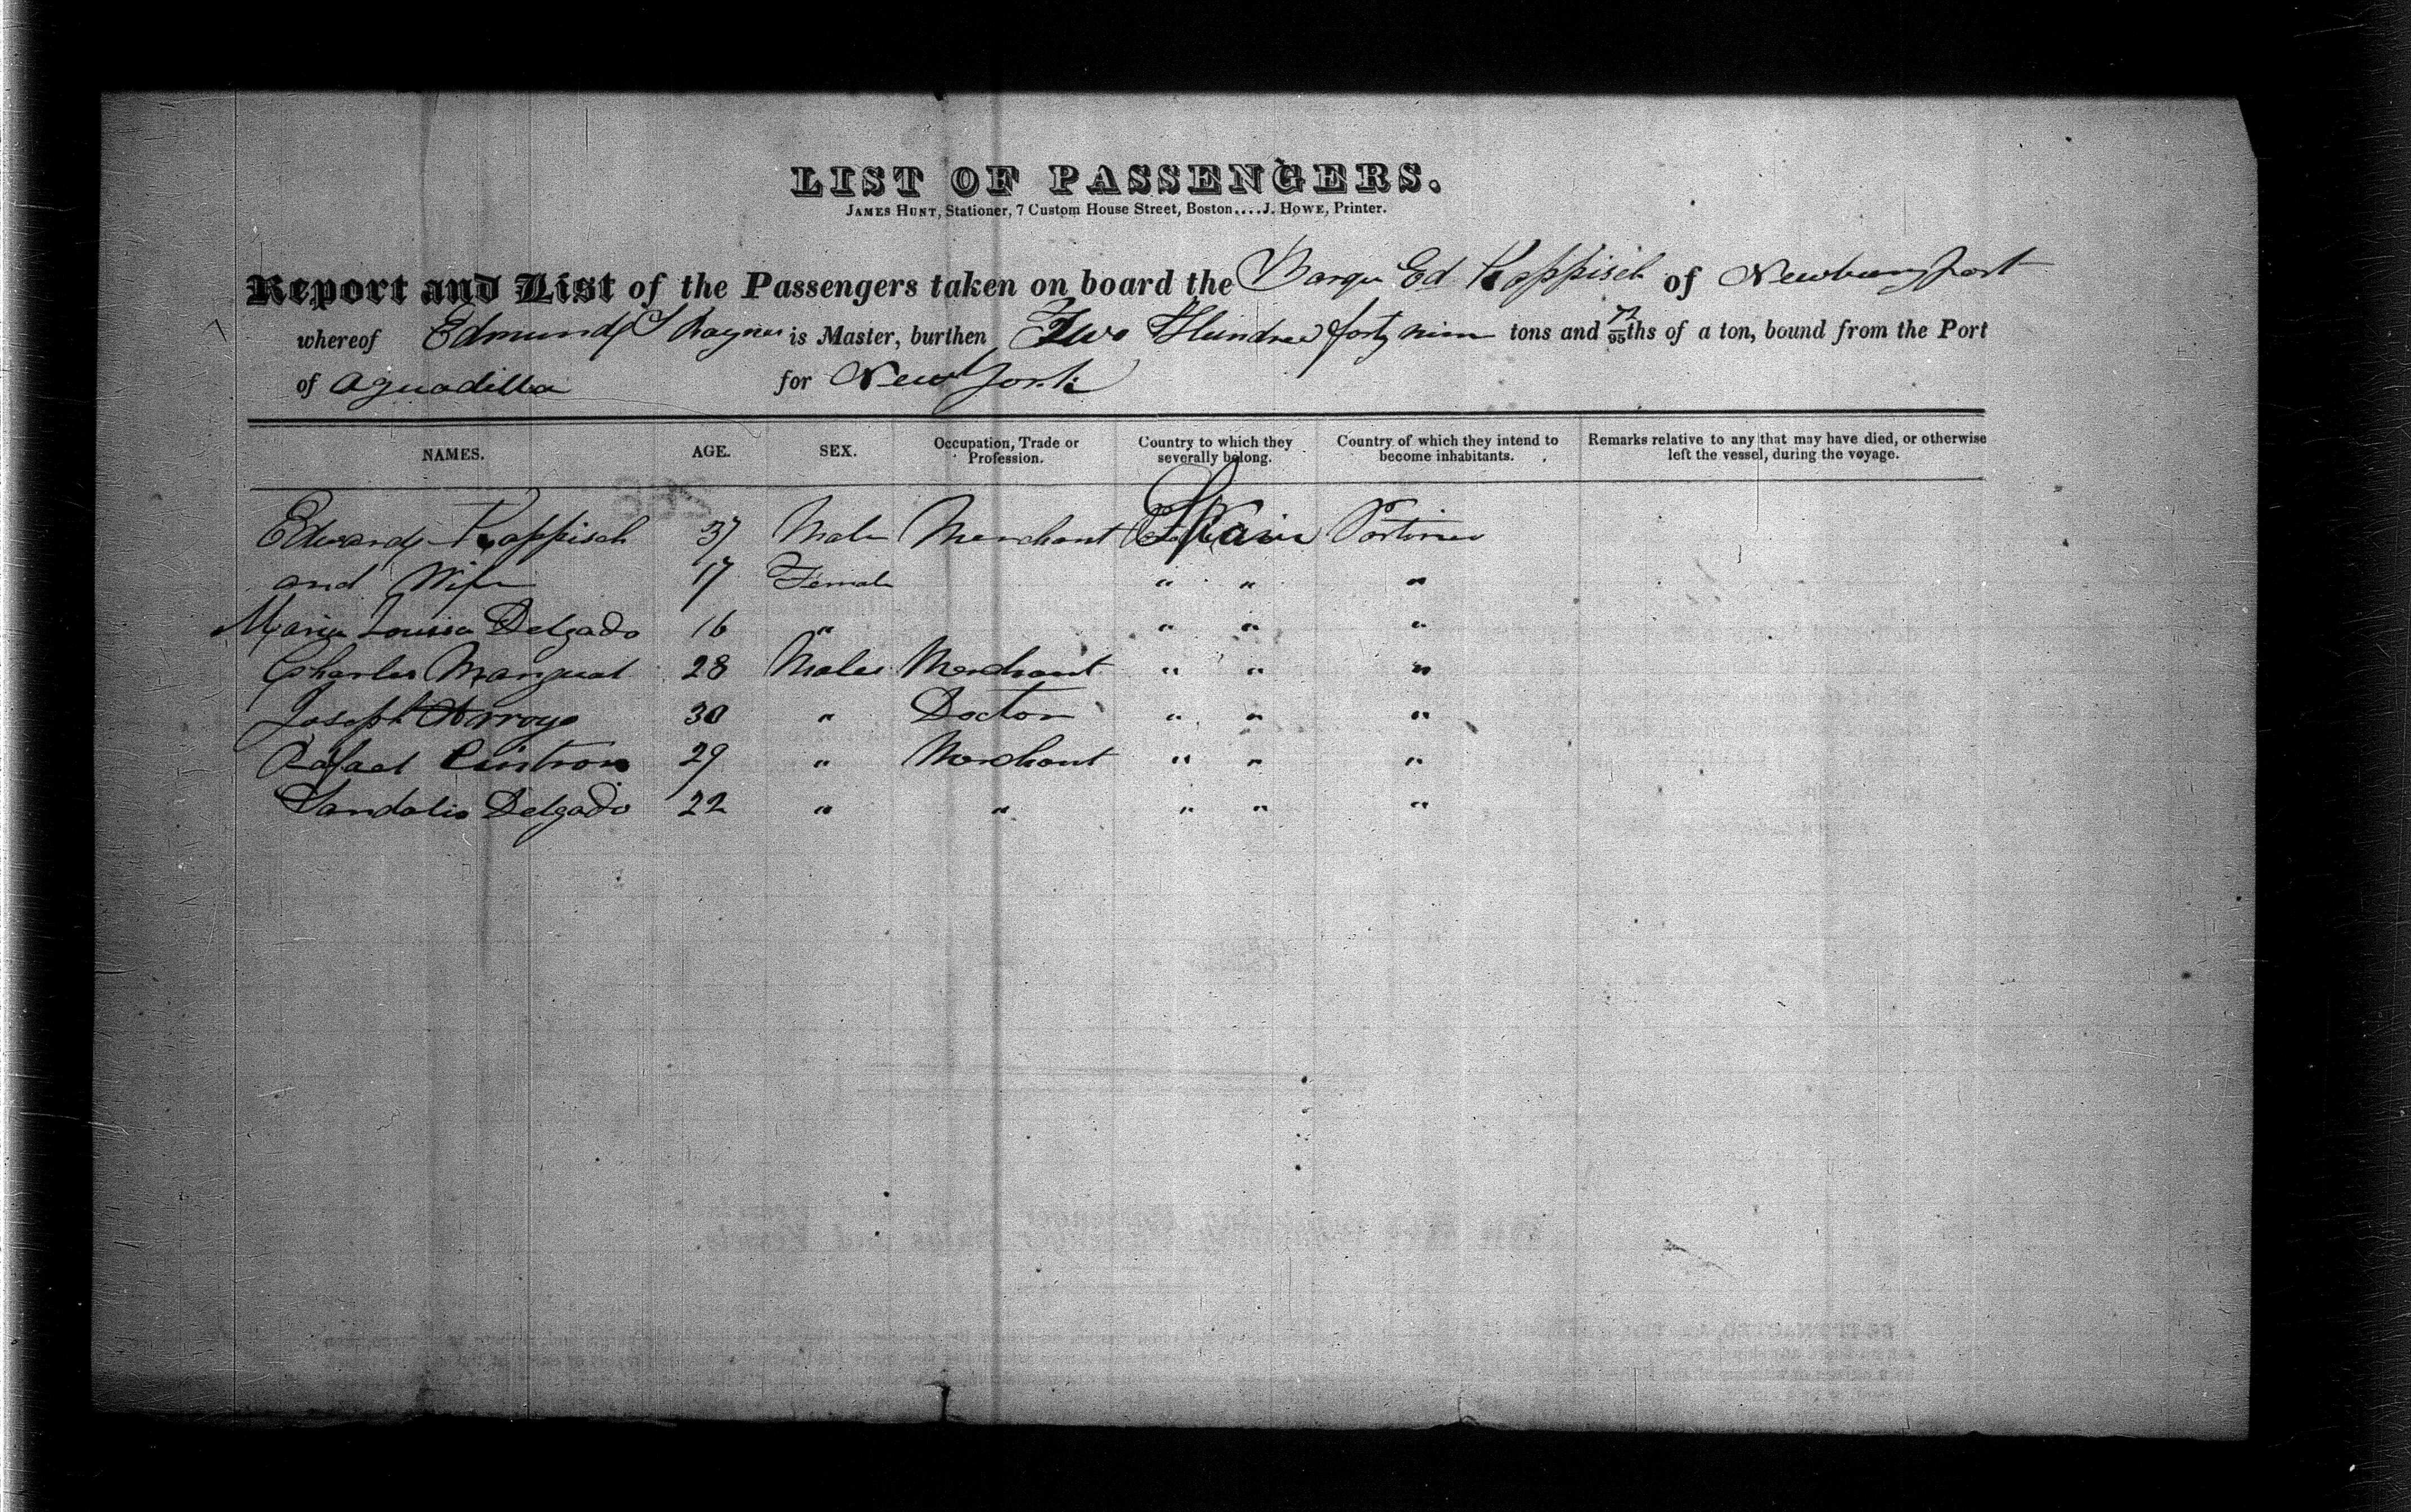 LIST OF PASSENGERS.
JAMES HUNT, Stationer, 7 Custom House Street, Boston....J. HOWE, Printer.
Report and List of the Passengers taken on board the Barque Ed Koppisch of Newburyport
whereof Edmund S Raynes is Master, burthen Two Hundred forty nine tons and 72/95ths of a ton, bound from the Port
of Aguadilla for New York
NAMES. AGE. SEX. Occupation, Trade or Profession. Country to which they severally belong. Country of which they intend to become inhabitants. Remarks relative to any that may have died, or otherwise left the vessel, during the voyage.
Edward Koppisch 37 Male Merchant Spain
and Wife 17 Female " " "
Maria Louisa Delgado 16 " " " "
Charles Mangual 28 Males Merchant " " "
Joseph Arroyo 30 " Doctor " " "
Rafael Cintron 29 " Merchant " " "
Sandalio Delgado 22 " " " " "